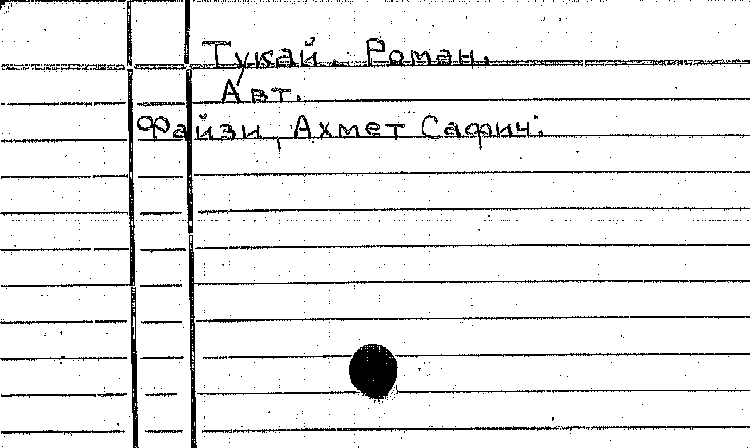 Тукай. Роман.
Авт.
Файзи, Ахмет Сафич.